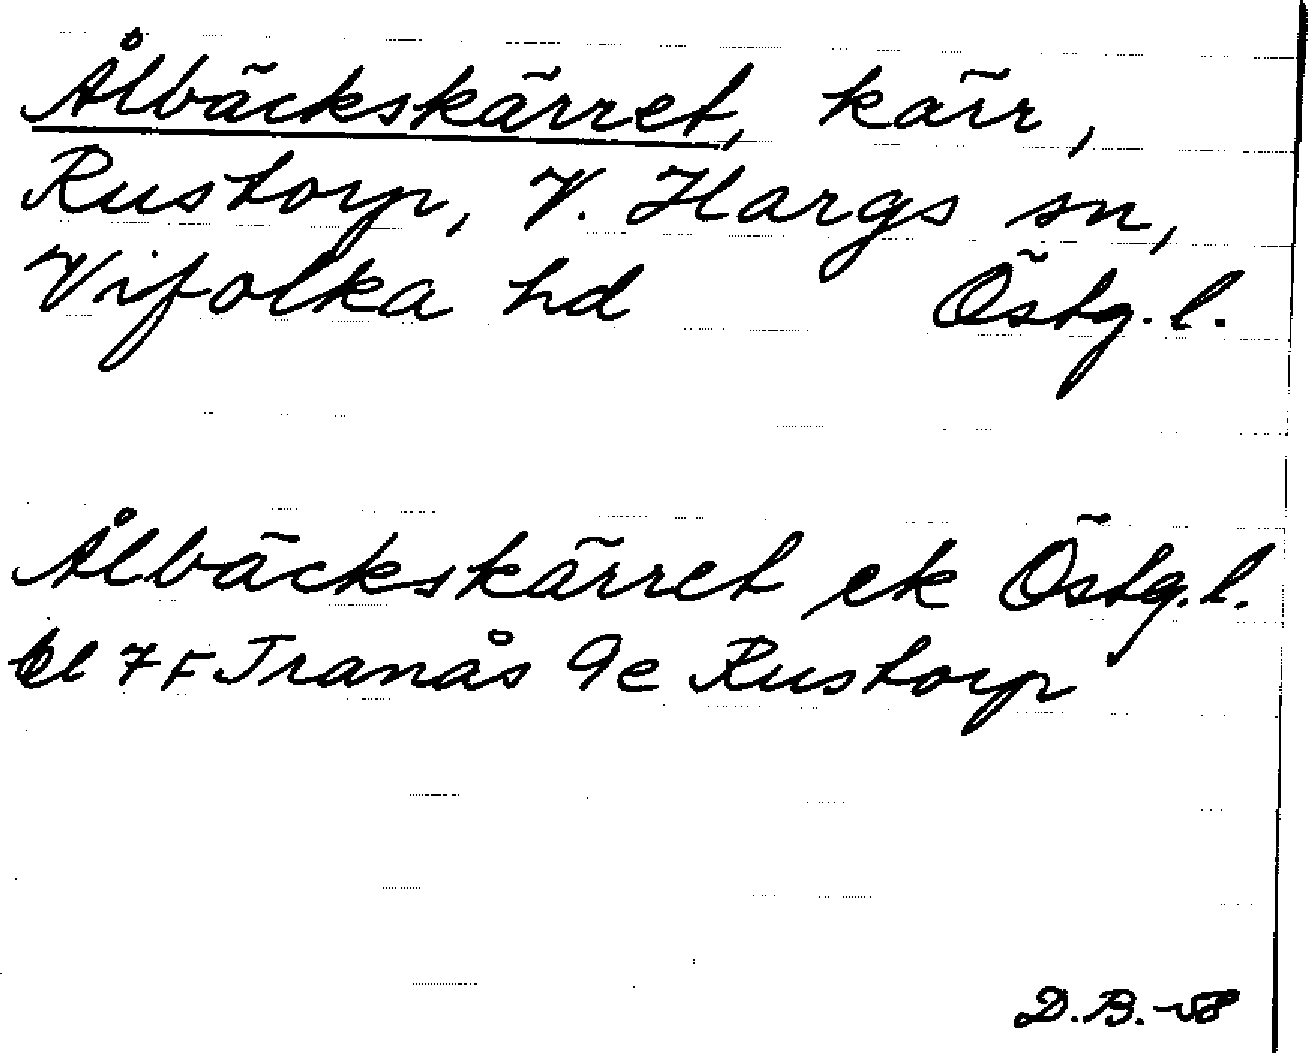 Ålbäckskärret, kärr,
Rustorp, V. Hargs sn,
Vifolka hd Östg. l.
Ålbäckskärret ek Östg. l.
bl 7 F Tranås 9e Rustorp
D.B.-58